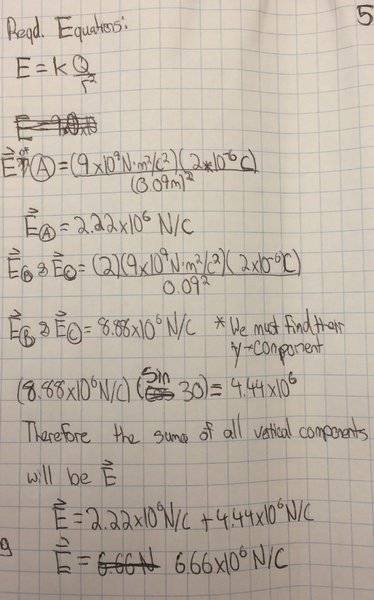 5
Reqd. Equations:
E = k Q/r²
E⃗ of Ⓐ = (9x10⁹N·m²/c²)(2*10⁻⁶C)/(0.09m)²
E⃗Ⓐ = 2.22x10⁶ N/C
E⃗Ⓑ & E⃗Ⓒ = (2)(9x10⁹N·m²/c²)(2x10⁻⁶C)/0.09²
E⃗Ⓑ & E⃗Ⓒ = 8.88x10⁶N/C * We must find their
y-component
(8.88x10⁶N/C)(sin 30) = 4.44x10⁶
Therefore the sume of all vertical components
will be E⃗
E⃗ = 2.22x10⁶N/C + 4.44x10⁶N/C
9
E⃗ = 6.66N 6.66x10⁶N/C